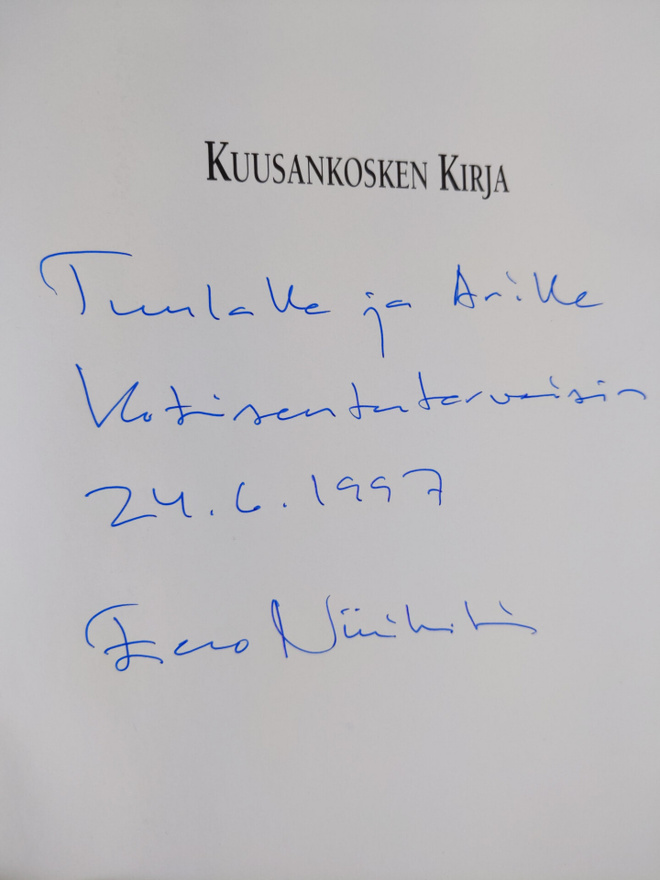 KUUSANKOSKEN KIRJA
Tuulalle ja Arille
Kotiseututerveisin
24.6.1997
Eero Niinikoski